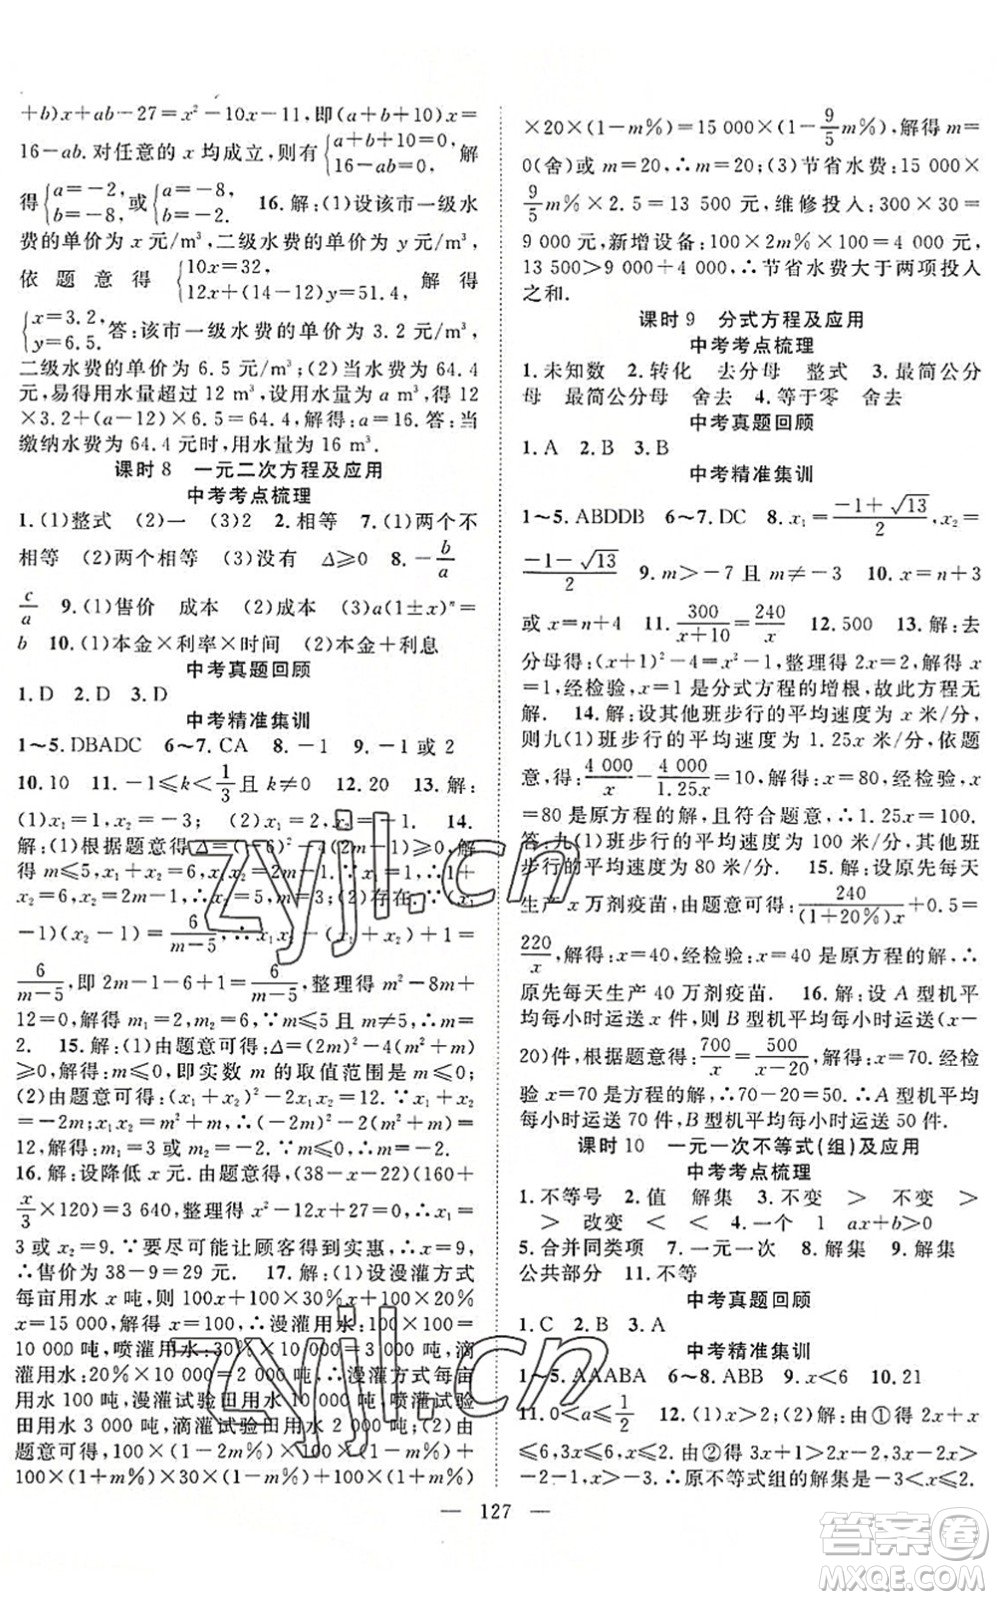 +b)x+ab-27=x²-10x-11,即(a+b+10)x=
16-ab.对任意的 x 均成立,则有{a+b+10=0, 16-ab=0, 解
得{a=-2, b=-8, 或{a=-8, b=-2. 16.解:(1)设该市一级水
费的单价为 x 元/m³,二级水费的单价为 y 元/m³,
依题意得{10x=32, 12x+(14-12)y=51.4, 解得
{x=3.2, y=6.5. 答:该市一级水费的单价为 3.2 元/m³,
二级水费的单价为 6.5 元/m³;(2)当水费为 64.4
元,易得用水量超过 12 m³,设用水量为 a m³,得 12
×3.2+(a-12)×6.5=64.4,解得:a=16.答:当
缴纳水费为 64.4 元时,用水量为 16 m³.
课时 8 一元二次方程及应用
中考考点梳理
1.(1)整式 (2)一 (3)2 2.相等 7.(1)两个不
相等 (2)两个相等 (3)没有 Δ≥0 8.-b/a
c/a 9.(1)售价 成本 (2)成本 (3)a(1±x)ⁿ=
b 10.(1)本金×利率×时间 (2)本金+利息
中考真题回顾
1.D 2.D 3.D
中考精准集训
1~5.DBADC 6~7.CA 8.-1 9.-1 或 2
10.10 11.-1≤k<1/3且 k≠0 12.20 13.解:
(1)x₁=1,x₂=-3; (2)x₁=2,x₂=-1. 14.
解:(1)根据题意得 Δ=(-6)²-4(2m-1)≥0,解
得 m≤5,x₁+x₂=6,x₁x₂=2m-1,∵x₁=1,∴1+
x₂=6,x₂=2m-1,∴x₂=5,m=3;(2)存在.∵(x₁
-1)(x₂-1)=6/(m-5),∴x₁x₂-(x₁+x₂)+1=
6/(m-5),即 2m-1-6+1=6/(m-5),整理得 m²-8m+
12=0,解得 m₁=2,m₂=6,∵m≤5 且 m≠5,∴m=
2. 15.解:(1)由题意可得:Δ=(2m)²-4(m²+
m)≥0,解得 m≤0,即实数 m 的取值范围是 m≤0;
(2)由题意可得:(x₁+x₂)²-2x₁x₂=12,∵x₁+x₂=
-2m;x₁·x₂=m²+m,∴(-2m)²-2(m²+m)=
12,解得:m₁=3 或 m₂=-2.∵m≤0,∴m=-2.
16.解:设降低 x 元.由题意可得:(38-x-22)(160+
x/3×120)=3 640,整理得 x²-12x+27=0,∴x₁=
3 或 x₂=9.∵要尽可能让顾客得到实惠,∴x=9,
∴售价为 38-9=29 元. 17.解:(1)设漫灌方式
每亩用水 x 吨,则有 100x+100×30%x+100×20%
x=15 000,解得 x=100,∴漫灌用水:100×100=
10 000 吨,喷灌用水:30%×10 000=3 000 吨,滴
灌用水:20%×10 000=2 000 吨,漫灌方式每亩
用水 100 吨,漫灌试验田用水 10 000 吨,喷灌试验
田用水 3 000 吨,滴灌试验田用水 2 000 吨;(2)由
题意可得,100×(1-2m%)×100×(1-m%)+
100×(1+m%)×30×(1-m%)+100×(1+m%)
×20×(1-m%)=15 000×(1-9/5m%),解得 m=
0(舍)或 m=20,∴m=20;(3)节省水费:15 000×
9/5m%×2.5=13 500元,维修投入:300×30=
9 000元,新增设备:100×2m%×100=4 000元,
13 500>9 000+4 000,∴节省水费大于两项投入
之和.
课时 9 分式方程及应用
中考考点梳理
1.未知数 2.转化 去分母 整式 3.最简公分
母 最简公分母 舍去 4.等于零 舍去
中考真题回顾
1.A 2.B 3.B
中考精准集训
1~5.ABDDB 6~7.DC 8.x₁=(-1+√13)/2,x₂=
(-1-√13)/2 9.m>-7 且 m≠-3 10.x=n+3
或 x=n+4 11.300/(x+10)=240/x 12.500 13.解:去
分母得:(x+1)²-4=x²-1,整理得 2x=2,解得 x
=1,经检验,x=1 是分式方程的增根,故此方程无
解. 14.解:设其他班步行的平均速度为 x 米/分,
则九(1)班步行的平均速度为 1.25x 米/分,依题
意,得:4 000/x-4 000/1.25x=10,解得:x=80,经检验,x
=80 是原方程的解,且符合题意,∴1.25x=100.
答:九(1)班步行的平均速度为 100 米/分,其他班
步行的平均速度为 80 米/分. 15.解:设原先每天
生产 x 万剂疫苗,由题意可得:240/(1+20%)x+0.5=
220/x,解得:x=40,经检验:x=40 是原方程的解,∴
原先每天生产 40 万剂疫苗. 16.解:设 A 型机平
均每小时运送 x 件,则 B 型机平均每小时运送(x-
20)件,根据题意得:700/x=500/(x-20),解得:x=70,经检
验 x=70 是方程的解,∴70-20=50,∴A 型机平均
每小时运送 70 件,B 型机平均每小时运送 50 件.
课时 10 一元一次不等式(组)及应用
中考考点梳理
1.不等号 2.值 解集 3.不变 > 不变 >
> 改变 < < 4.一个 1 ax+b>0
5.合并同类项 7.一元一次 8.解集 9.解集
公共部分 11.不等
中考真题回顾
1.C 2.B 3.A
中考精准集训
1~5.AAABA 6~8.ABB 9.x<6 10.21
11.0<a≤1/2 12.(1)x>2;(2)解:由①得 2x+x
≤6,3x≤6,x≤2.由②得 3x+1>2x-2,3x-2x>
-2-1,x>-3,∴原不等式组的解集为-3<x≤2.
— 127 —
zyjl.cn
zyjl.cn
答案卷
MXQE.COM